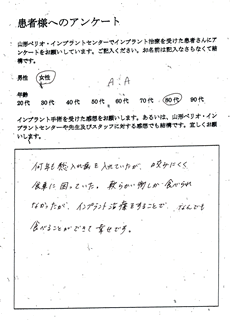 患者様へのアンケート
山形ペリオ・インプラントセンターでインプラント治療を受けた患者さんにア
ンケートをお願いしています。ご記入ください。お名前は記入なさらなくて結
構です。
男性 女性
A.A
年齢
20代 30代 40代 50代 60代 70代 80代 90代
インプラント手術を受けた感想をお願いします。あるいは、山形ペリオ・イン
プラントセンターや先生及びスタッフに対する感想でも結構です。宜しくお願
いします。
何年も総入れ歯を入れていたが、咬みにくく
食事に困っていた。軟らかい物しか食べられ
なかったが、インプラント治療をすることで、なんでも
食べることができて幸せです。